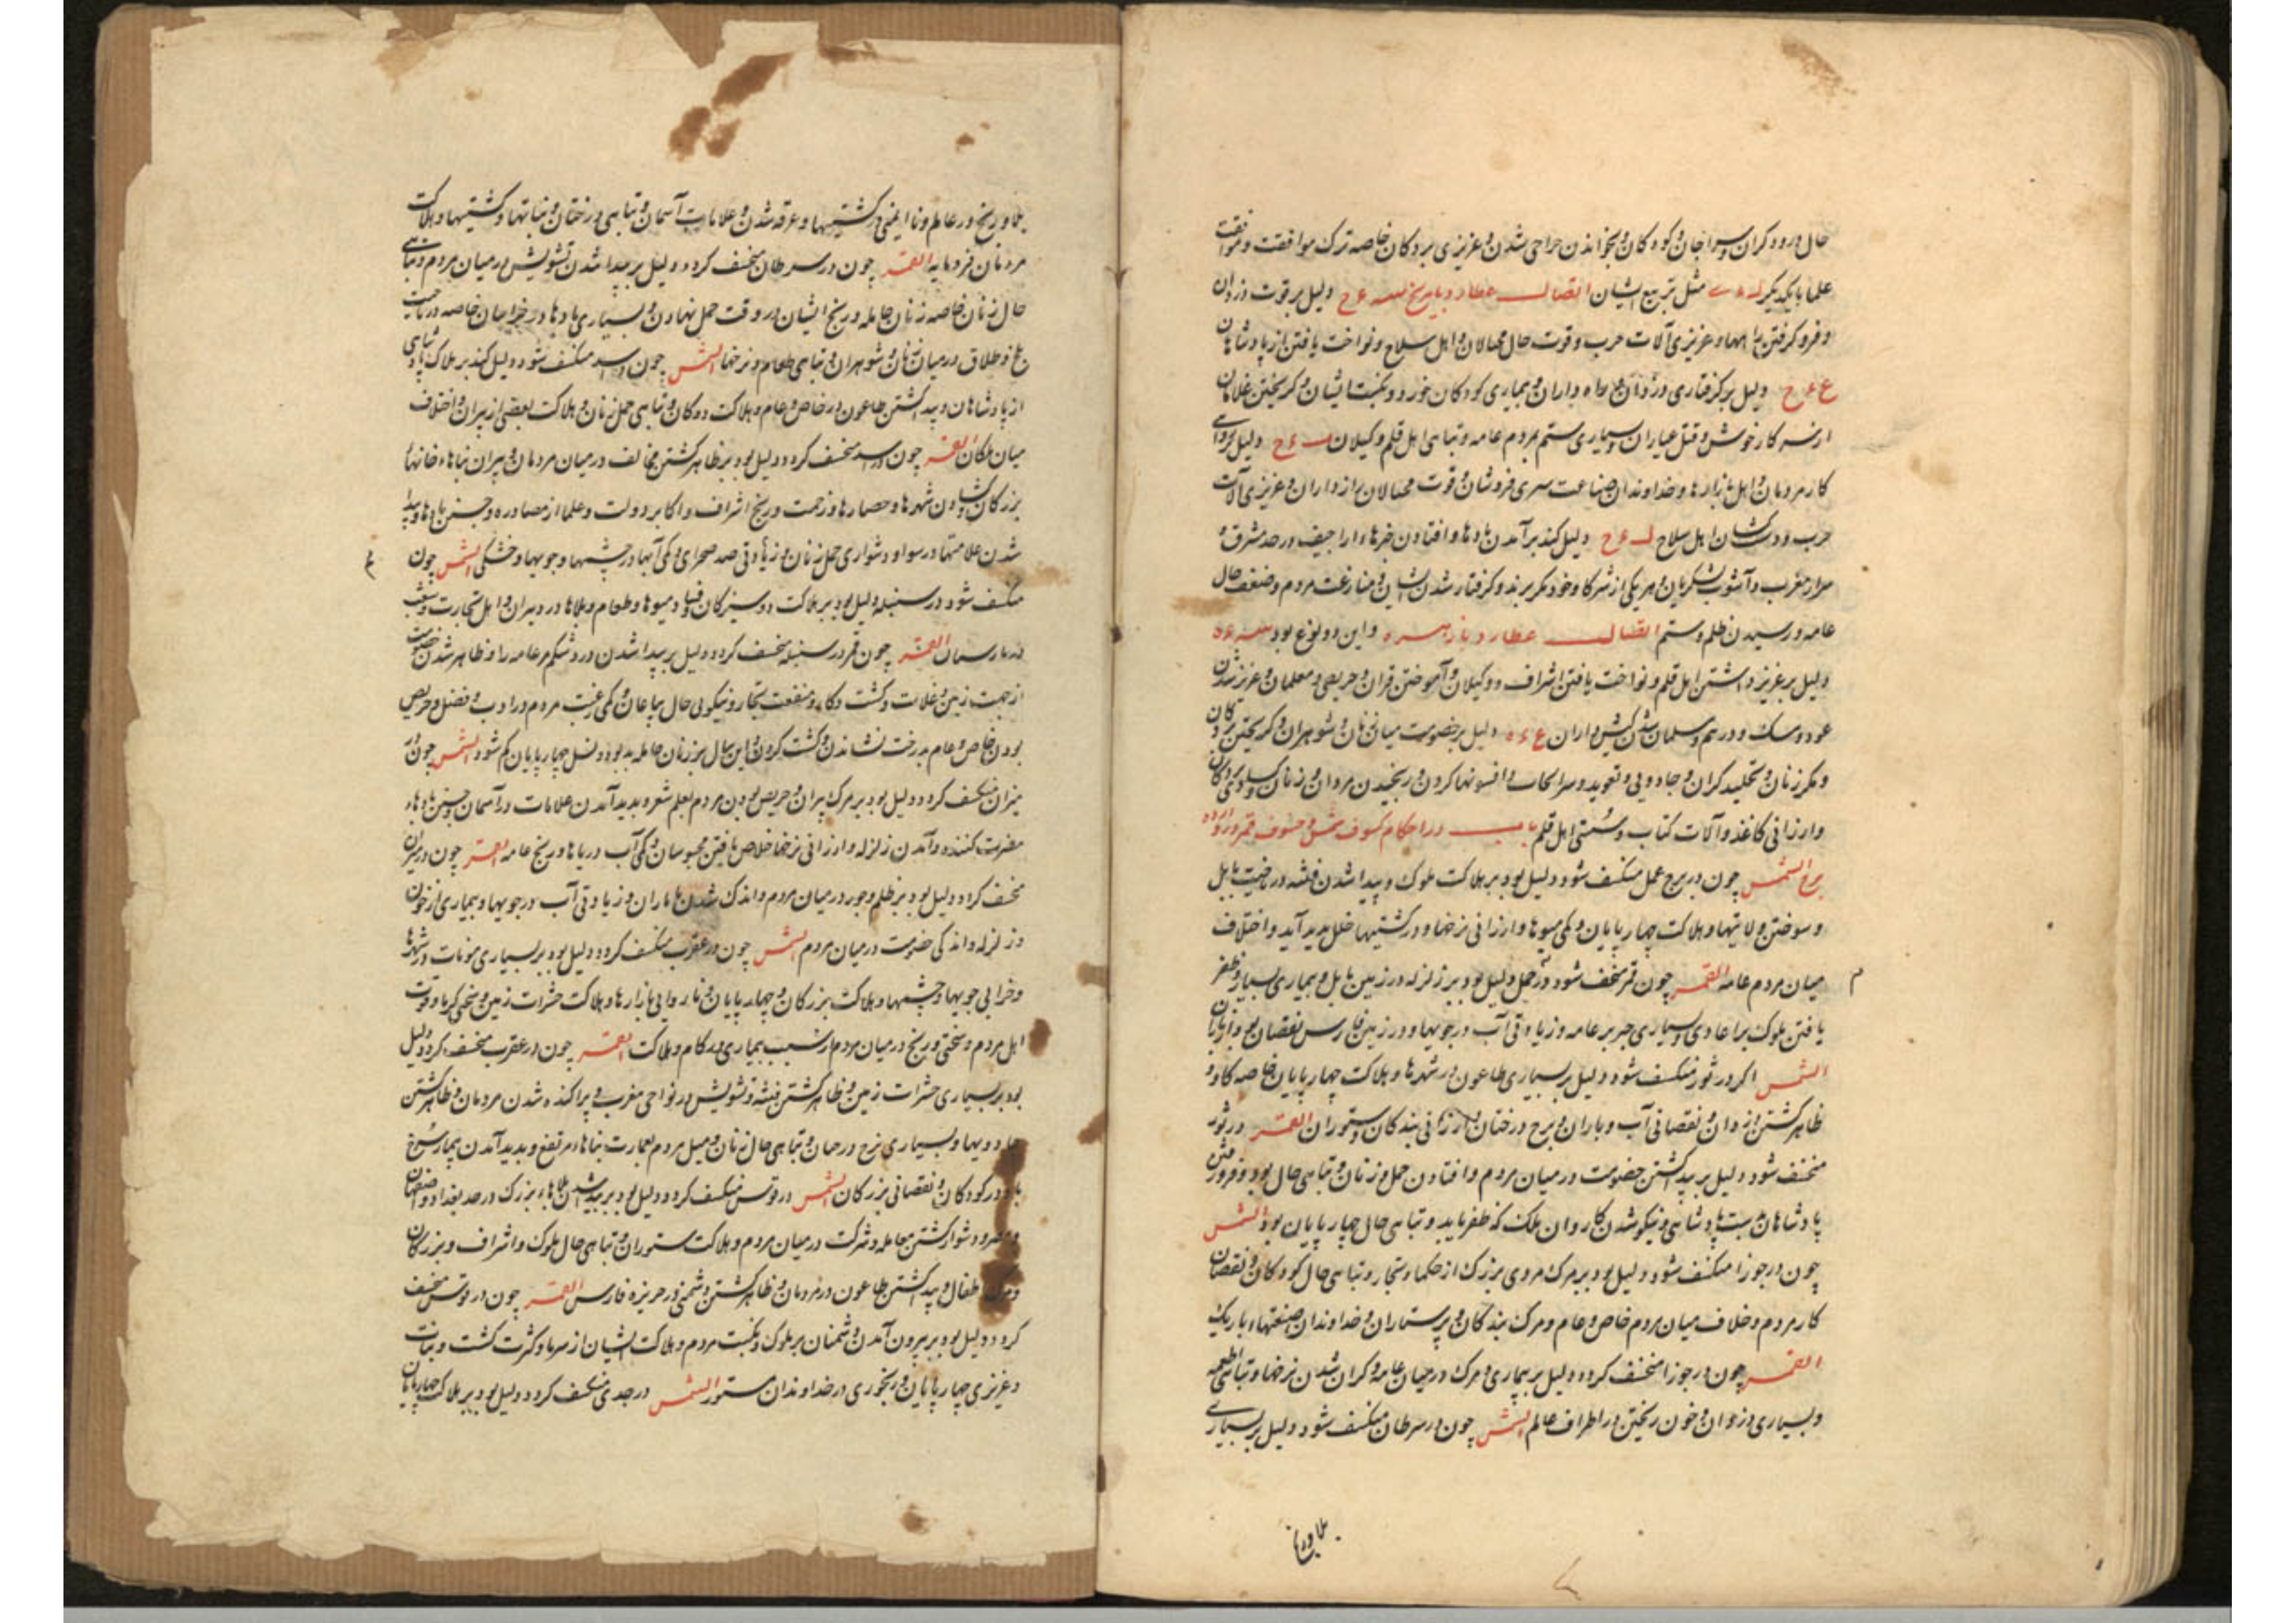 حال درودکران و سراجان و کودکان و بخواندن حراجی شدن و عزیزی بردکان خاصه ترک موافقت و موافقت
علما بایکدیکر مثل تربیع ایشان اتصال عطارد بامریخ دلیل بر قوت دزدان
و فرو کرفتن راهها و عزیزی آلات حرب و قوت حال محتالان و اهل سلاح و نواخت یافتن از پادشاهان
دلیل بر کرفتاری دزدان و راه داران و بیماری کودکان خورد و نکبت ایشان و کریختن غلامان
کار خویش و قتل عیاران و بسیاری ستم بر مردم عامه و تباهی اهل قلم و کیلان دلیل بر روایی
کار مردمان و اهل بازارها و خداوندان صناعت سری فروشان و قوت محتالان راه داران و عزیزی آلات
حرب و اهل سلاح دلیل کند بر آمدن بادها و افتادن خبرهاء اراجیف در حد مشرق و
مغرب و آشوب لشکریان و هر یکی از شرکاء خود مکر برند و کرفتار شدن ایشان و منازعت مردم و ضعف حال
عامه و رسیدن ظلم و ستم اتصال عطارد بازهره و این دو نوع بود
دلیل بر عزیز داشتن اهل قلم و نواخت یافتن اشراف و وکیلان و آموختن قران و حریصی معلمان و عزیز شدن
عود و مسک و درهم و مسلمان شدن کیش داران دلیل بر خصومت میان زنان و شوهران و کریختن بردکان
و مکر زنان و تخلید کران و جادویی و تعوید و افسونها کردن و رنجیدن مردان و زنان
و ارزانی کاغذ و آلات کتاب و سستی اهل قلم باب در احکام کسوف شمس و خسوف قمر در دوازده
برج الشمس چون در برج حمل منکسف شود دلیل بود بر هلاکت ملوک و پیدا شدن فتنه در ناحیت بابل
و سوختن ولایتها و هلاکت چهارپایان و کمی میوها و ارزانی نرخها و در کشتیها خلل بدید آید و اختلاف
میان مردم عامه القمر چون قمر منخسف شود در حمل دلیل بود بر زلزله در زمین بابل و بیماری بسیار و ظفر
یافتن ملوک بر اعادی و بسیاری جبر بر عامه و زیادتی آب در جویها و در زمین فارس نقصان بود از باران
الشمس اکر در ثور منکسف شود دلیل بر بسیاری طاعون در شهرها و هلاکت چهارپایان خاصه کاو و
ظاهر کشتن و نقصانی آب و باران و درختان و ارزانی بندکان و ستوران القمر در ثور
منخسف شود دلیل بر پیدا کشتن خصومت در میان مردم و افتادن حمل زنان و تباهی حال بود و فرو رفتن
پادشاهان و نیکو شدن کار و آن ملک که ظفر یابد و تباهی حال چهارپایان بود الشمس
چون در جوزا منکسف شود دلیل بود بر مرک مردی بزرک از حکما و تجار و تباهی حال کودکان و نقصان
کار مردم و خلاف میان مردم خاص و عام و مرک بندکان و پرستاران و خداوندان صنعتهاء باریک
القمر چون در جوزا منخسف کردد دلیل بر بیماری و مرک در میان عامه و کران شدن نرخها و تباهی اطعمه
و بسیاری دزدان و خون ریختن در اطراف عالم الشمس چون در سرطان منکسف شود دلیل بر بسیاری
بلا و رنج در عالم و ناایمنی در کشتیها و غرقه شدن و علامات آسمان و تباهی درختان و نباتها و کشتیها و هلاکت
مردمان فرومایه القمر چون در سرطان منخسف کردد دلیل بر پیدا شدن تشویش در میان مردم و تباهی
حال زنان خاصه زنان حامله و رنج ایشان در وقت حمل نهادن و بسیاری بادها در خراسان خاصه در ناحیت
بلخ و طلاق در میان زنان و شوهران و تباهی طعام و نرخها الشمس چون در اسد منکسف شود دلیل کند بر هلاک پادشاهی
از پادشاهان و پیدا کشتن طاعون در خاص و عام و هلاکت و تباهی حمل زنان و هلاکت بعضی از پیران و اختلاف
میان ملکان القمر چون در اسد منخسف کردد دلیل بود بر ظاهر کشتن مخالف در میان مردمان و پیران خانهاء
بزرکان و شهرها و حصارها و زحمت و رنج اشراف و اکابر دولت و علما از مصادره و جستن بادها و پیدا
شدن علامتها در سواد و دشواری حمل زنان و زیادتی صحرای و کمی آبها در چشمها و جویها و خشکی الشمس چون
منکسف شود در سنبله دلیل بود بر هلاکت دوشیزکان و میوها و طعام و بلاها در دبیران و اهل تجارت و شغب
القمر چون قمر در سنبله منخسف کردد دلیل بر پیدا شدن درد شکم مر عامه را و ظاهر شدن خصومت
از جهت زمین و غلات و کشت و کار و منفعت تجار و نیکویی حال بیاعان و کمی رغبت مردم در ادب و فضل و حریص
بودن خاص و عام بدرخت نشاندن و کشت کردن و این سال بر زنان حامله بد بود و نسل چهارپایان کم شود الشمس چون در
میزان منکسف کردد دلیل بود بر مرک پیران و حریص بودن مردم بعلم شعر و بدید آمدن علامات در آسمان و جستن بادهاء
مضرت کننده و آمدن زلزله و ارزانی نرخها خلاص یافتن محبوسان و کمی آب دریاها و رنج عامه القمر چون در میزان
منخسف کردد دلیل بود بر ظلم و جور در میان مردم و اندک شدن باران و زیادتی آب در جویها و بیماری از خون
و زلزله و اندکی خصومت در میان مردم الشمس چون در عقرب منکسف کردد دلیل بود بر بسیاری مونات در شهرها
و خرابی جویها و چشمها و هلاکت بزرکان و چهارپایان و ناروایی بازارها و هلاکت حشرات زمین و سختی کرما و قوت
اهل مردم و سختی و رنج در میان مردم از سبب بیماری در کام و هلاکت القمر چون در عقرب منخسف کردد دلیل
بود بر بسیاری حشرات زمین و ظاهر کشتن فتنه و تشویش در نواحی مغرب و پراکنده شدن مردمان و ظاهر کشتن
جادویها و بسیاری نرخ و تباهی حال زنان و میل مردم بعمارت بناهاء مرتفع و بدید آمدن بیماری سرخ
باد در کودکان و نقصانی بزرکان الشمس در قوس منکسف کردد دلیل بود بر پیدا شدن بلاهاء بزرک در حد بغداد و اصفهان
و دشوار کشتن معامله و شرکت در میان مردم و هلاکت ستوران و تباهی حال ملوک و اشراف و بزرکان
و مرک اطفال و پیدا کشتن طاعون در مردمان و ظاهر کشتن دشمنی در جزیزه فارس القمر چون در قوس منخسف
کردد دلیل بود بر بیرون آمدن دشمنان بر ملوک و نکبت مردم و هلاکت ایشان از سرما و کثرت کشت و نبات
و عزیزی چهارپایان و رنجوری در خداوندان ستور الشمس در جدی منکسف کردد دلیل بود بر هلاکت چهارپایان